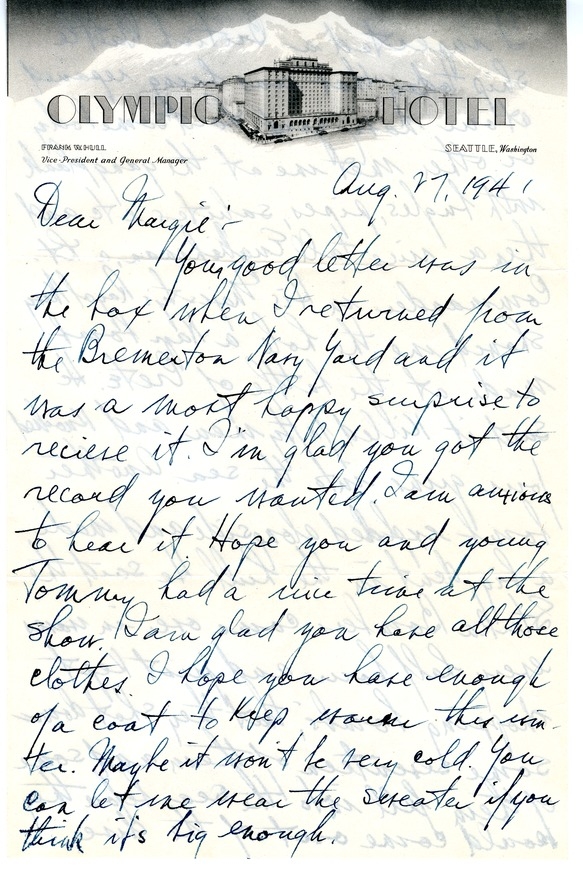 OLYMPIC HOTEL
FRANK W. HULL
Vice-President and General Manager
SEATTLE, Washington
Aug. 27, 1941
Dear Margie:-
Your good letter was in
the box when I returned from
the Bremerton Navy Yard and it
was a most happy surprise to
recieve it. I'm glad you got the
record you wanted. I am anxious
to hear it. Hope you and young
Tommy had a nice time at the
show. I am glad you have all those
clothes. I hope you have enough
of a coat to keep warm this win-
ter. Maybe it won't be very cold. You
can let me wear the sweater if you
think it's big enough.